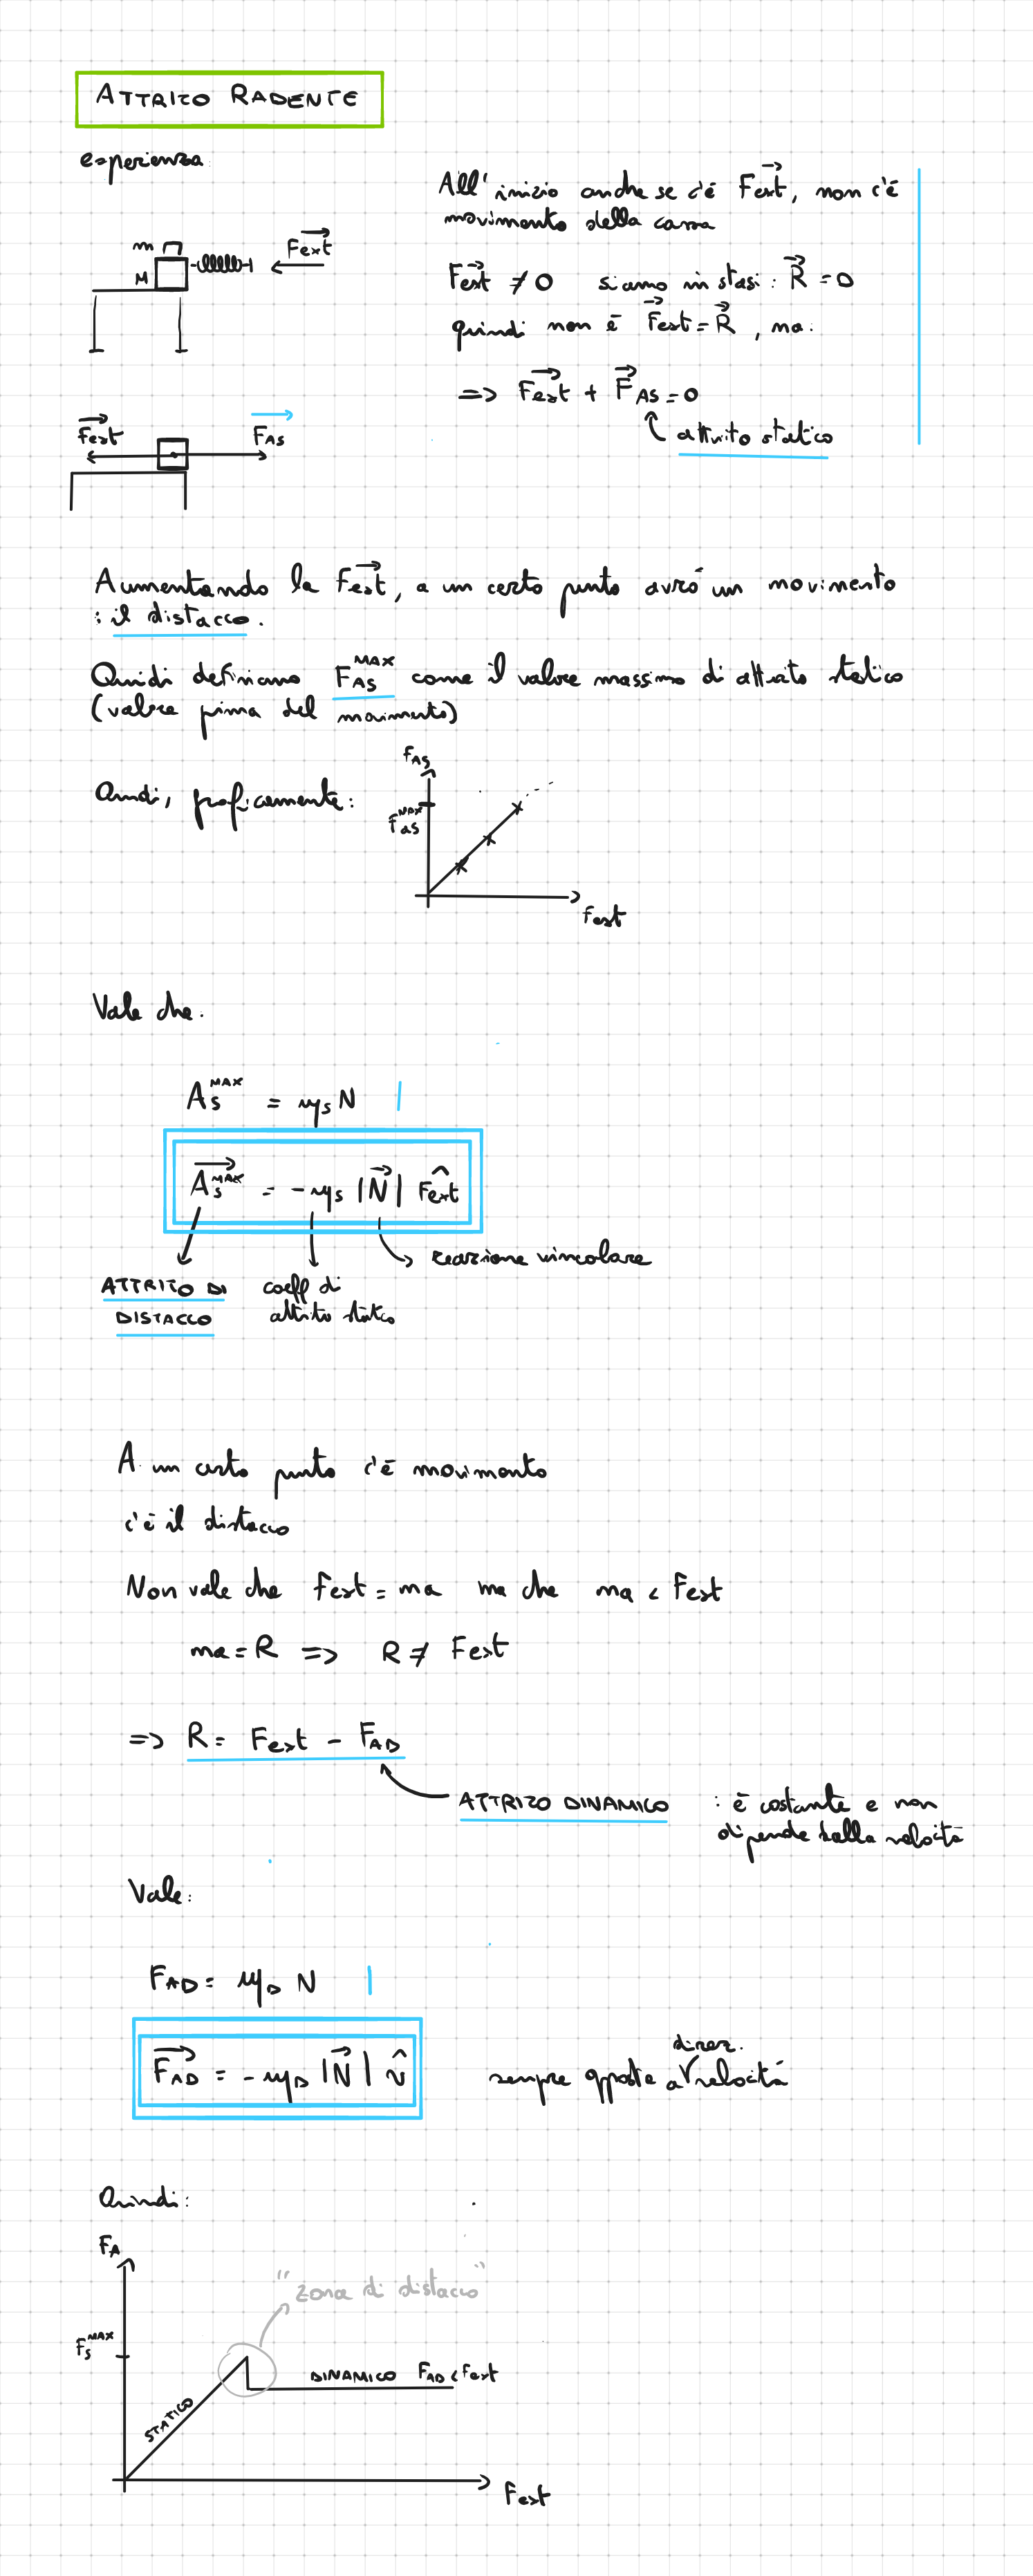 ATTRITO RADENTE
esperienza
All'inizio anche se c'è Fext, non c'è
movimento della cassa
m
M
Fext
Fext ≠ 0 siamo in stasi: R = 0
quindi non è Fext = R, ma:
=> Fext + FAS = 0
attrito statico
Fext
FAS
Aumentando la Fext, a un certo punto avrò un movimento
: il distacco.
Quindi definiamo FAS^MAX come il valore massimo di attrito statico
(valore prima del movimento)
Quindi, graficamente:
FAS
FAS^MAX
Fext
Vale che:
AS^MAX = μs N
AS^MAX = -μs |N| Fext
reazione vincolare
ATTRITO DI
DISTACCO
coeff di
attrito statico
A un certo punto c'è movimento
c'è il distacco
Non vale che Fext = ma ma che ma < Fext
ma = R => R ≠ Fext
=> R = Fext - FAD
ATTRITO DINAMICO : è costante e non
dipende dalla velocità
Vale:
FAD = μD N
FAD = -μD |N| v
sempre opposte a direz. velocità
Quindi:
FA
"zona di distacco"
FS^MAX
DINAMICO FAD < Fext
STATICO
Fext